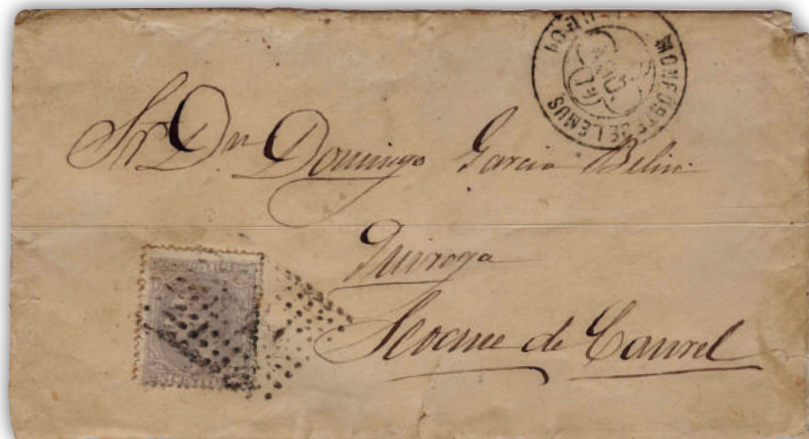 MONFORTE DE LEMUS
Sr Dn Domingo Garcia
Quiroga
Seoane de Caurel